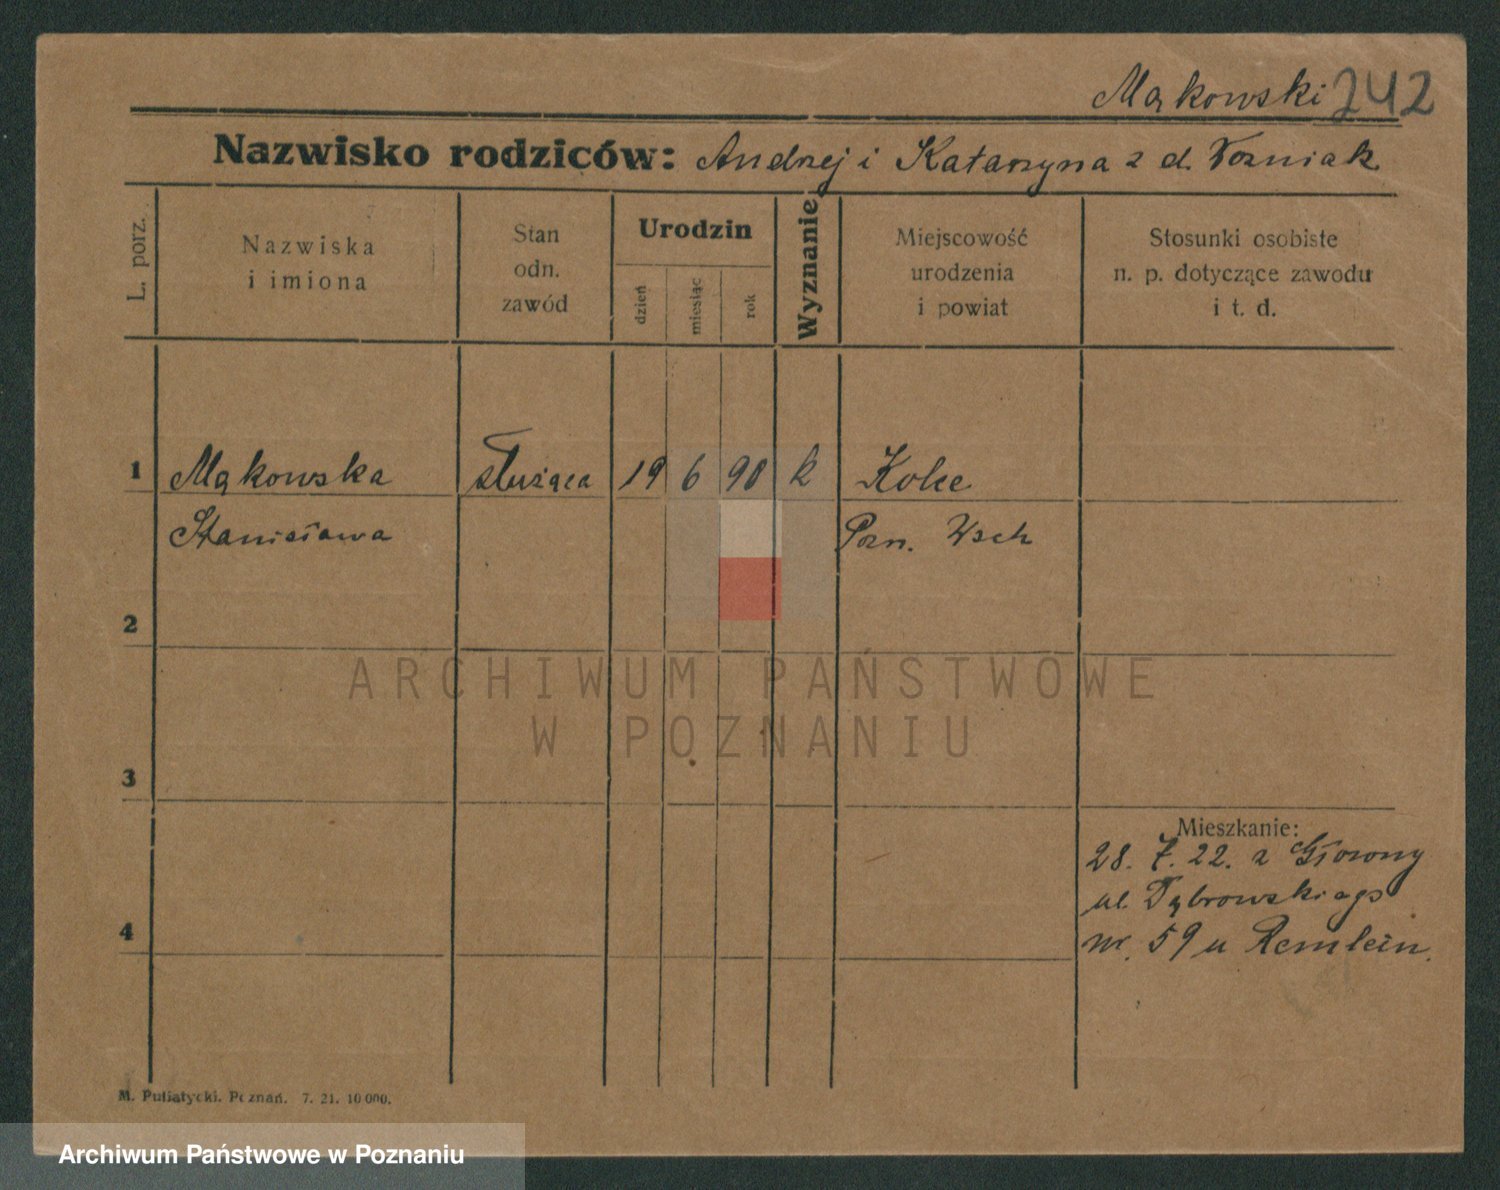 Mąkowski 242
Nazwisko rodziców: Andrzej i Katarzyna z d. Woźniak
L. porz.
Nazwiska
i imiona
Stan
odn.
zawód
Urodzin
dzień
miesiąc
rok
Wyznanie
Miejscowość
urodzenia
i powiat
Stosunki osobiste
n. p. dotyczące zawodu
i t. d.
1 Mąkowska służąca 19 6 90 k
Stanisława Pozn. Wsch
2
3
4
Mieszkanie:
28. 7. 22. z Głowny
ul. Dąbrowskiego
nr. 59 u Remlein.
M. Putiatycki. Poznań. 7. 21. 10 000.
ARCHIWUM PAŃSTWOWE
W POZNANIU
Archiwum Państwowe w Poznaniu